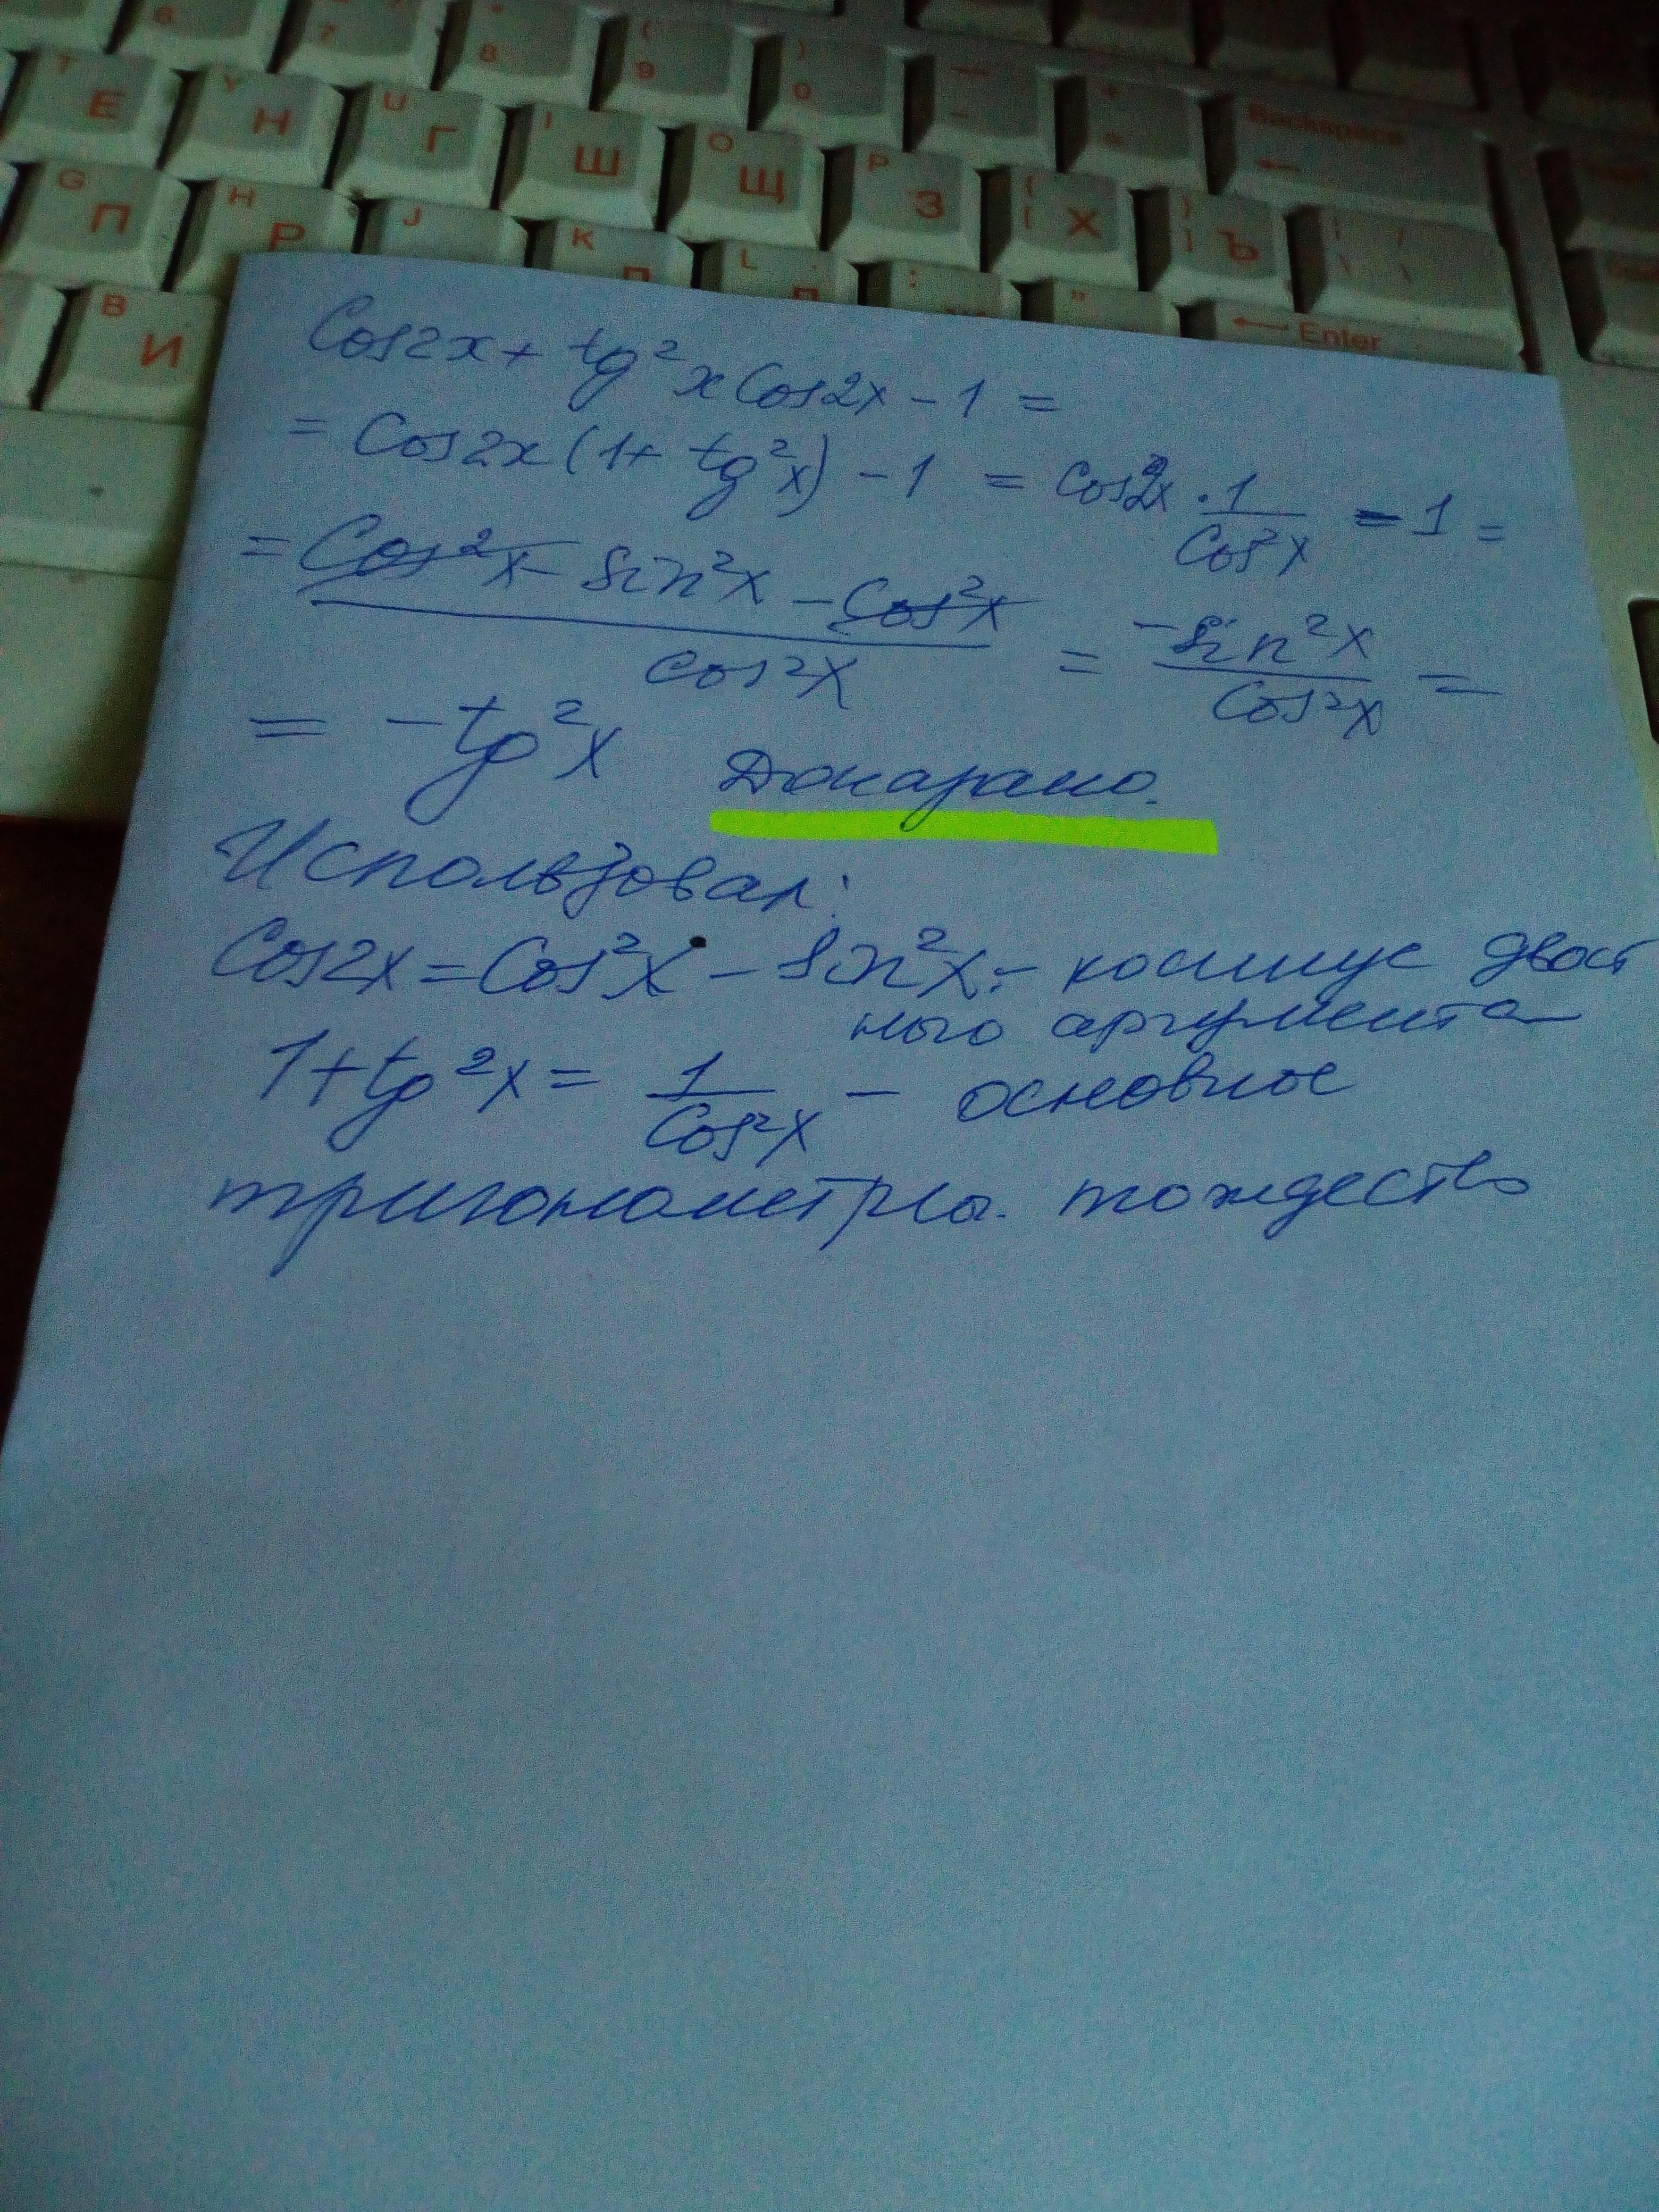 6 7 * 8 ( 9 ) 0 — - + = Backspace ←
T Е Y Н U Г I Ш O Щ P З { [ Х } ] Ъ | \
G П H Р J K L : ; " ← Enter
B И
Cos2x + tg²x Cos2x - 1 =
= Cos2x (1 + tg²x) - 1 = Cos2x · 1/Cos²x - 1 =
= (Cos²x - Sin²x - Cos²x)/Cos²x = -Sin²x/Cos²x =
= -tg²x Доказано.
Использовал:
Cos2x = Cos²x - Sin²x - косинус двой
ного аргумента
1 + tg²x = 1/Cos²x - основное
тригонометрич. тождество